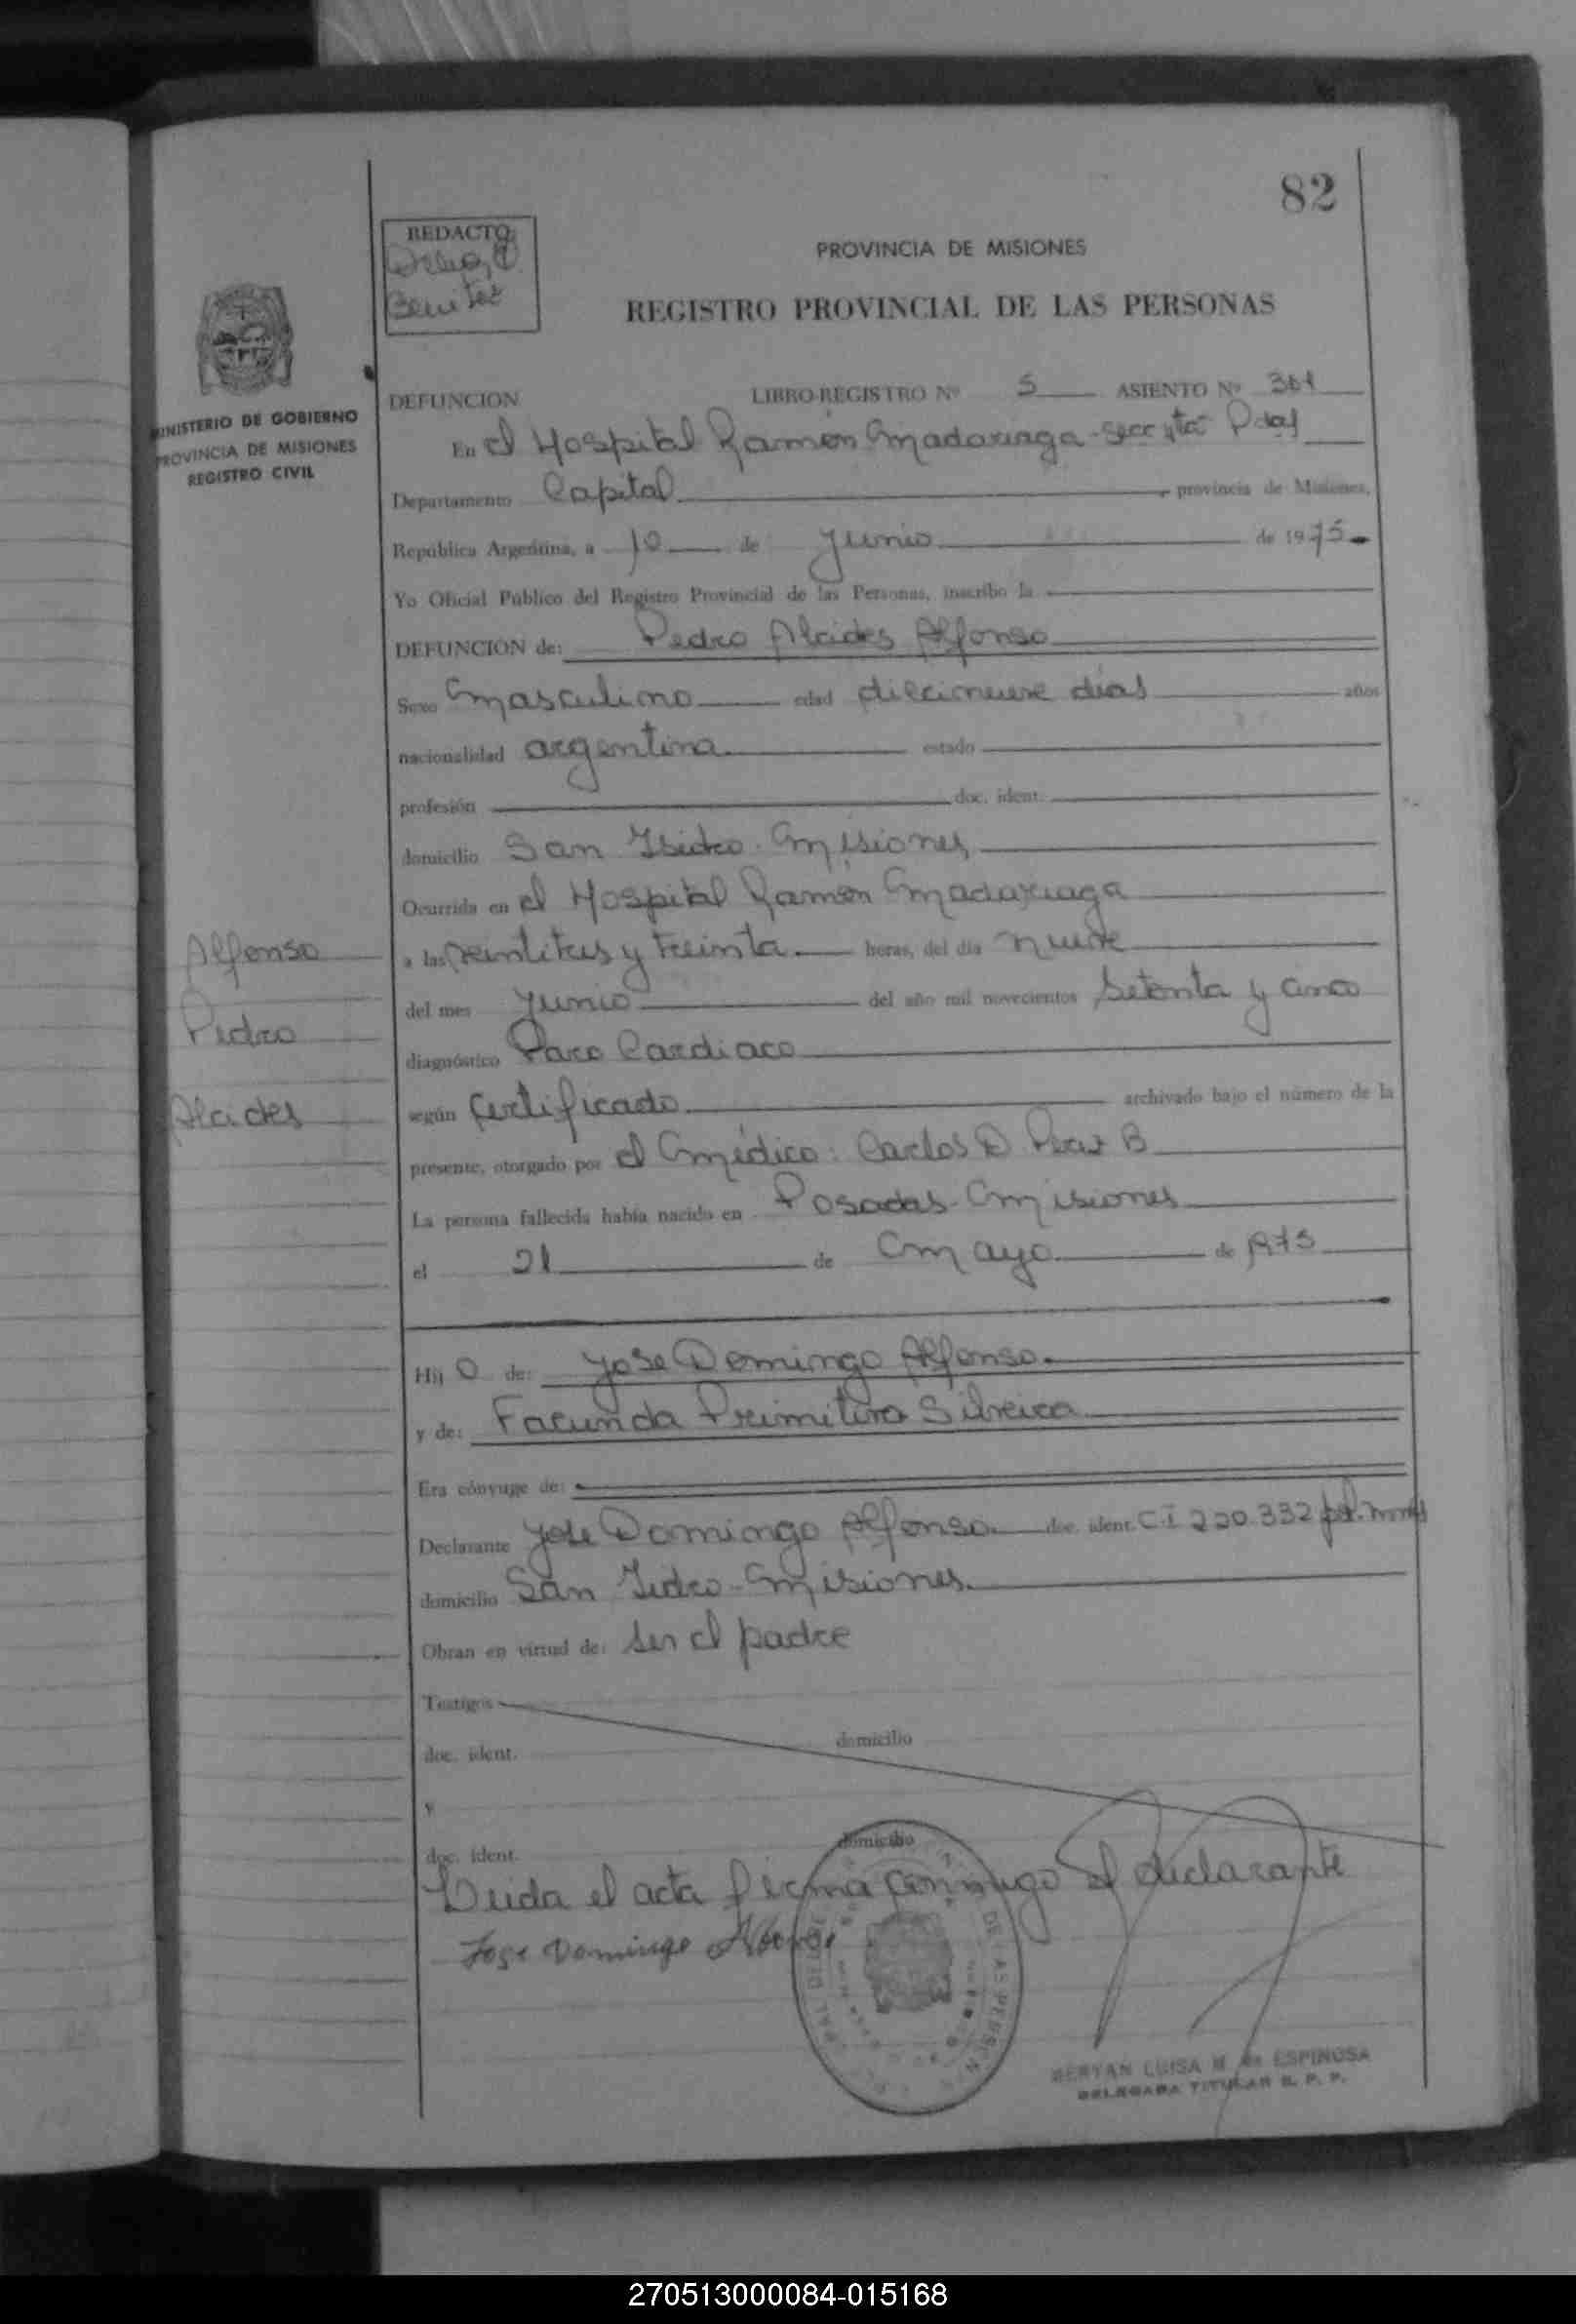 82
REDACTO
Benitez
PROVINCIA DE MISIONES
REGISTRO PROVINCIAL DE LAS PERSONAS
MINISTERIO DE GOBIERNO
PROVINCIA DE MISIONES
REGISTRO CIVIL
DEFUNCION LIBRO-REGISTRO Nº 5 ASIENTO Nº 301
En el Hospital Ramón Madariaga - Secc yta Pdas
Departamento Capital provincia de Misiones,
República Argentina, a 10 de Junio de 1975
Yo Oficial Público del Registro Provincial de las Personas, inscribo la
DEFUNCION de: Pedro Alcides Alfonso
Sexo Masculino edad diecinueve días años
nacionalidad argentina estado
profesión doc. ident.
domicilio San Isidro - Misiones
Ocurrida en el Hospital Ramón Madariaga
a las veintitres y treinta horas, del día nueve
del mes Junio del año mil novecientos setenta y cinco
diagnóstico Paro Cardiaco
según certificado archivado bajo el número de la
presente, otorgado por el Médico: Carlos D B
La persona fallecida había nacido en Posadas - Misiones
el 21 de Mayo de 1975
Hij o de: Jose Domingo Alfonso
y de: Facunda Primitiva Silveira
Era cónyuge de:
Declarante Jose Domingo Alfonso doc. ident. C.I 220.332 pol. mnes
domicilio San Isidro - Misiones
Obran en virtud de: ser el padre
Testigos
doc. ident. domicilio
y
doc. ident. domicilio
Leida el acta firma conmigo el declarante
Jose Domingo Alfonso
LUISA M. de ESPINOSA
DELEGADA TITULAR R. P. P.
Alfonso
Pedro
Alcides
270513000084-015168